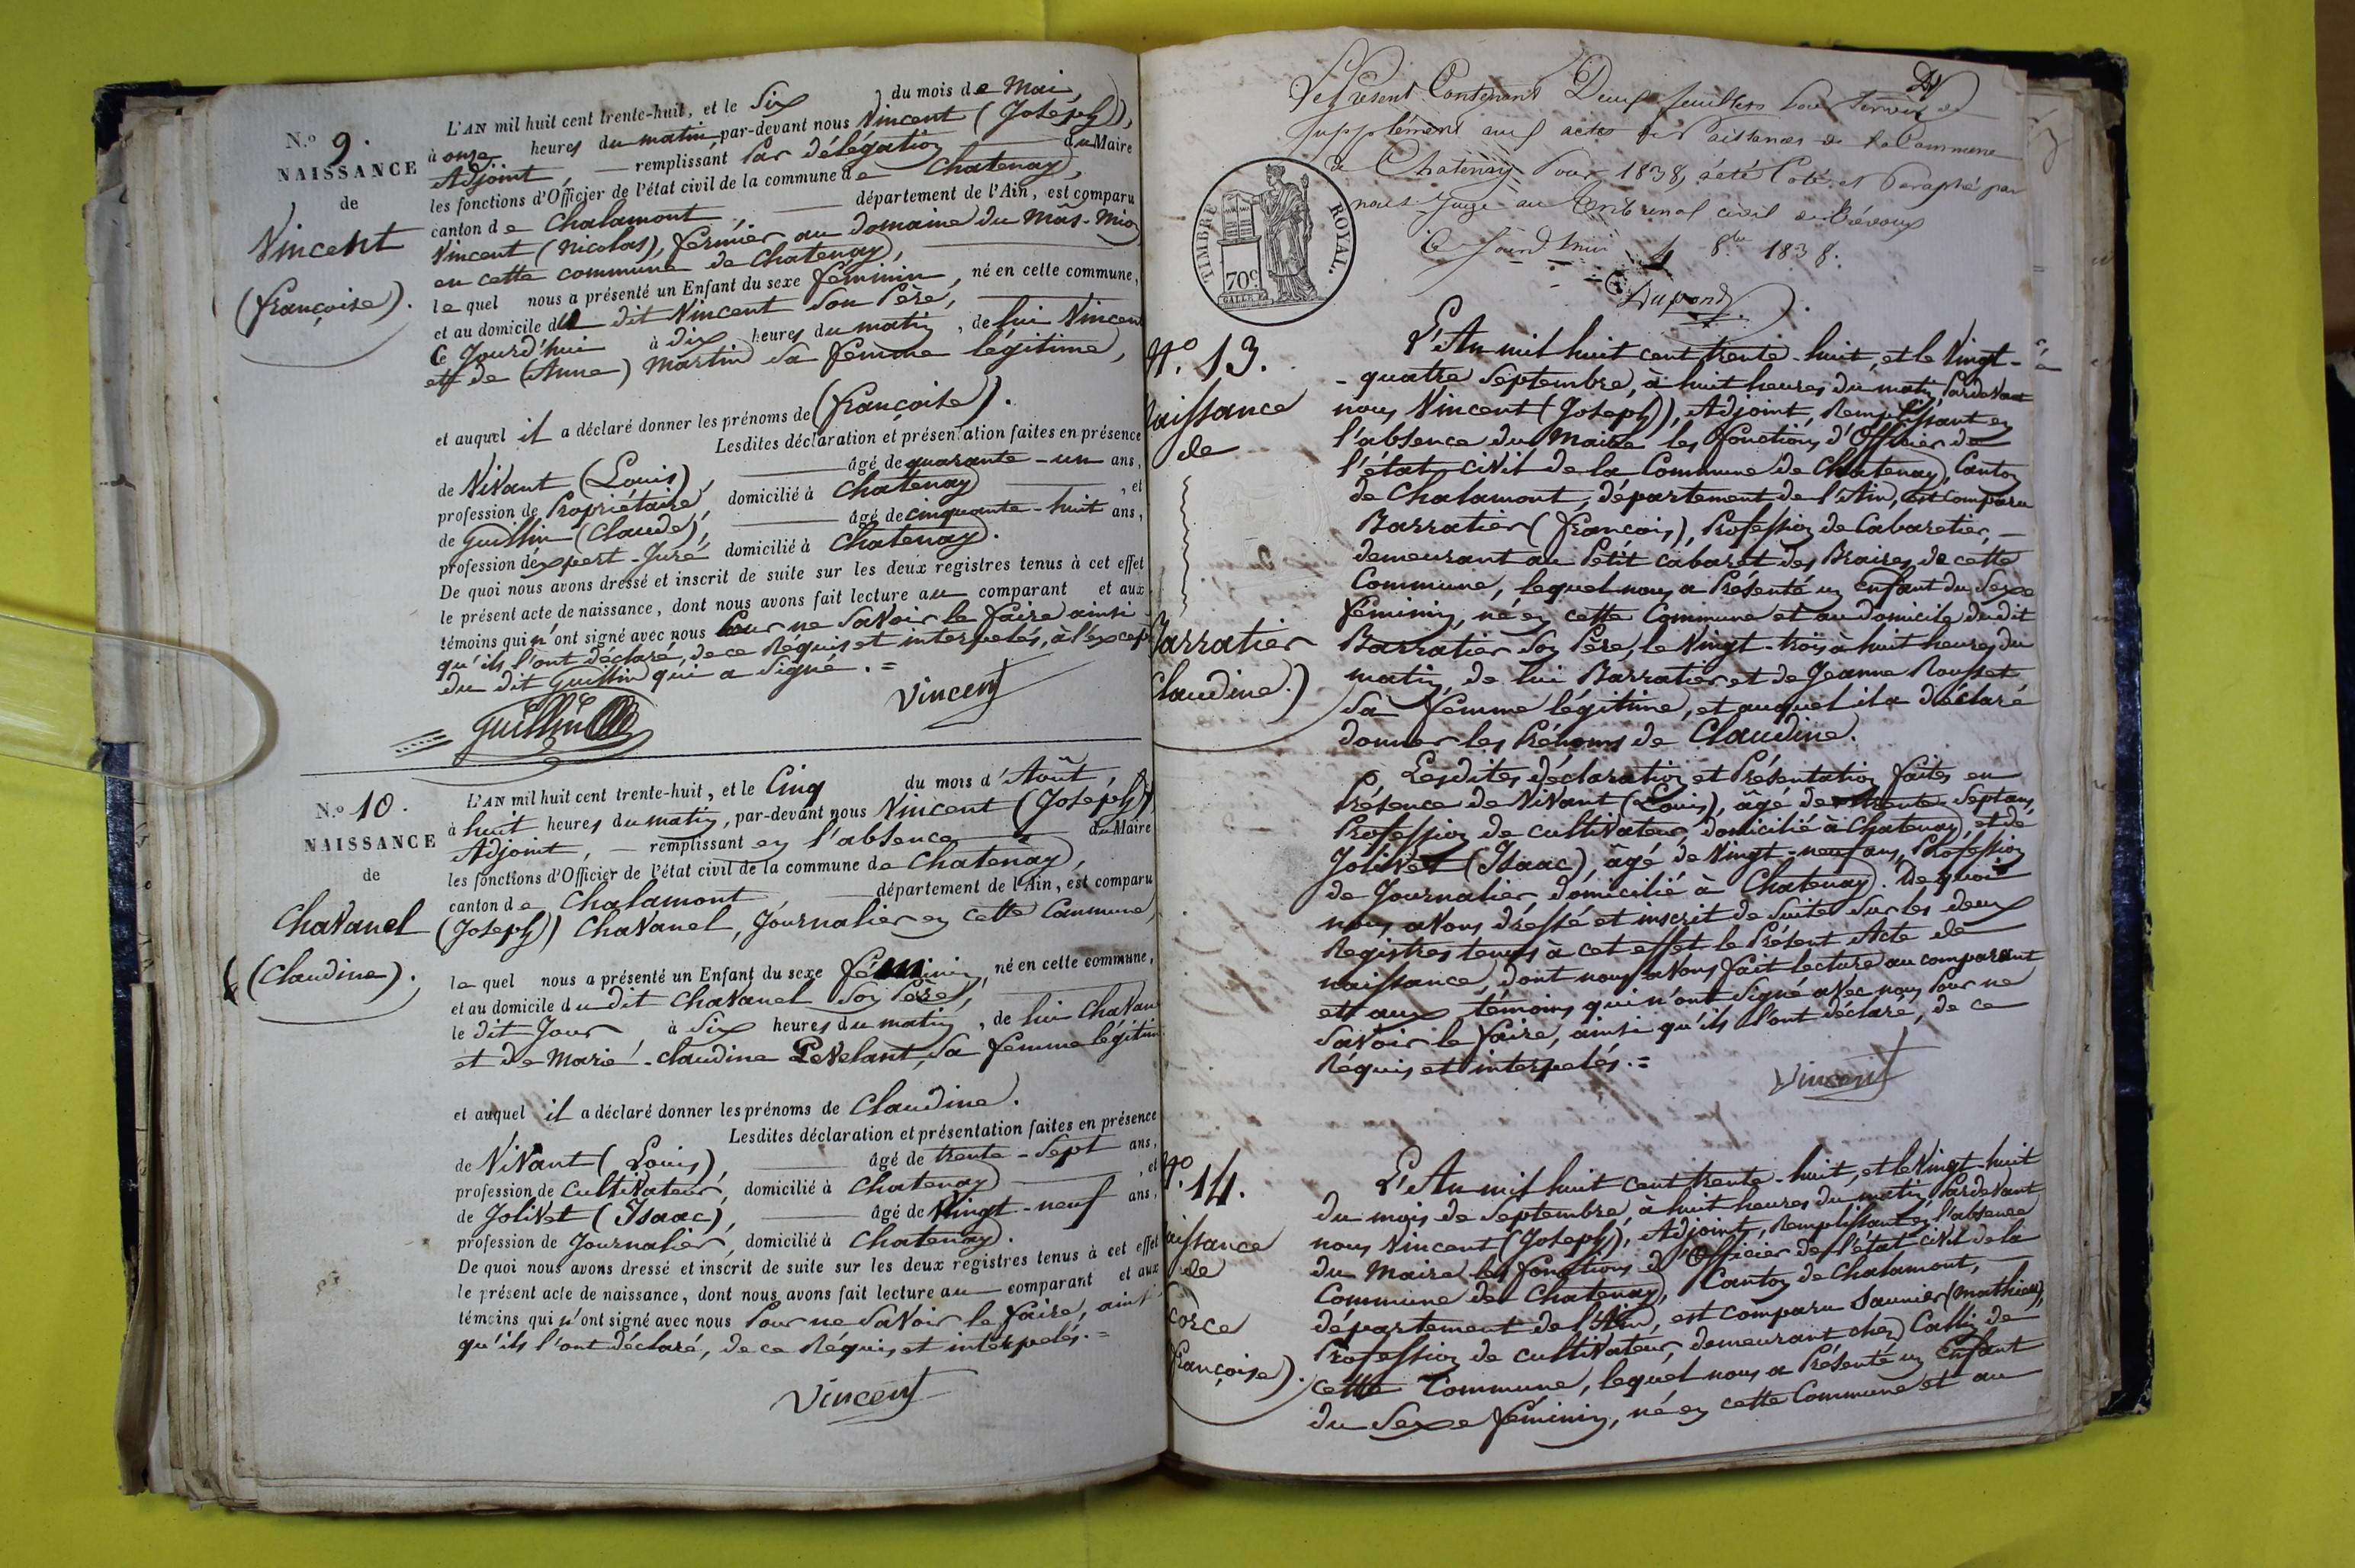 N.º 9.
NAISSANCE
de
Vincent
(françoise).
L'AN mil huit cent trente-huit, et le Six du mois de Mai,
à onze heures du matin par-devant nous Vincent (Joseph),
Adjoint, remplissant par délégation du Maire
les fonctions d'Officier de l'état civil de la commune de Chatenay,
canton de Chalamont, département de l'Ain, est comparu
Vincent (Nicolas), fermier au domaine du Mâs-Mion
en cette commune de Chatenay,
lequel nous a présenté un Enfant du sexe féminin, né en cette commune,
et au domicile du dit Vincent son Père,
Ce Jourd'hui à dix heures du matin, de lui Vincent
et de (Anne) Martin sa femme légitime,
et auquel il a déclaré donner les prénoms de (françoise).
Lesdites déclaration et présentation faites en présence
de Vivant (Louis), âgé de quarante-un ans,
profession de Propriétaire, domicilié à Chatenay, et
de Guillin (Claude), âgé de cinquante-huit ans,
profession d'expert-Juré domicilié à Chatenay.
De quoi nous avons dressé et inscrit de suite sur les deux registres tenus à cet effet
le présent acte de naissance, dont nous avons fait lecture au comparant et aux
témoins qui n'ont signé avec nous Pour ne savoir le faire ainsi
qu'ils l'ont déclaré, de ce Réquis et interpelés, à l'except
du dit Guillin qui a signé.=
Vincent
Guillin
N.º 10.
NAISSANCE
de
Chavanel
(Claudine).
L'AN mil huit cent trente-huit, et le Cinq du mois d'Août,
à huit heures du matin, par-devant nous Vincent (Joseph)
Adjoint, remplissant en l'absence du Maire
les fonctions d'Officier de l'état civil de la commune de Chatenay,
canton de Chalamont, département de l'Ain, est comparu
(Joseph) Chavanel, Journalier en cette Commune,
lequel nous a présenté un Enfant du sexe féminin, né en cette commune,
et au domicile du dit Chavanel son Père,
le dit Jour à Six heures du matin, de lui Chavan
et de Marie-Claudine Levelant, sa femme légitim
et auquel il a déclaré donner les prénoms de Claudine.
Lesdites déclaration et présentation faites en présence
de Vivant (Louis), âgé de trente-Sept ans,
profession de Cultivateur, domicilié à Chatenay, et
de Jolivet (Isaac), âgé de Vingt-neuf ans,
profession de Journalier, domicilié à Chatenay.
De quoi nous avons dressé et inscrit de suite sur les deux registres tenus à cet effet
le présent acte de naissance, dont nous avons fait lecture au comparant et aux
témoins qui n'ont signé avec nous Pour ne savoir le faire, ainsi
qu'ils l'ont déclaré, de ce Réquis et interpelés.=
Vincent
Le Présent Contenant Deux feuillets Pour Servir de
Supplément aux actes de Naissances de la Commune
de Chatenay Pour 1838, a été Coté et Paraphé par
nous Juge au tribunal civil de Trévoux
Ce jourd'hui 4 8bre 1838.
Dupond
TIMBRE ROYAL.
70c
N.º 13.
aissance
de
Barratier
Claudine.)
L'An mil huit cent trente-huit, et le Vingt-
-quatre Septembre, à huit heures du matin, Pardevant
nous Vincent (Joseph), Adjoint, Remplissant en
l'absence du Maire les fonctions d'Officier de
l'état civil de la Commune de Chatenay, Canton
de Chalamont, département de l'Ain, est comparu
Barratier (françois), Profession de Cabaretier,
demeurant au Petit cabaret des Braires, de cette
Commune, lequel nous a Présenté un Enfant du Sexe
féminin, né en cette Commune et au domicile du dit
Barratier son Père, le Vingt-trois à huit heures du
matin, de lui Barratier et de Jeanne Rousset
Sa femme légitime, et auquel il a déclaré
donner les Prénoms de Claudine.
Lesdites déclaration et Présentation faites en
Présence de Vivant (Louis), âgé de trente-Sept ans,
Profession de cultivateur, domicilié à Chatenay, et de
Jolivet (Isaac), âgé de Vingt-neuf ans, Profession
de Journalier, domicilié à Chatenay. De quoi
nous avons dressé et inscrit de suite sur les deux
Registres tenus à cet effet le Présent Acte de
naissance, dont nous avons fait lecture au comparant
et aux témoins qui n'ont signé avec nous Pour ne
Savoir le faire, ainsi qu'ils l'ont déclaré, de ce
Réquis et interpelés.=
Vincent
N.º 14.
aissance
de
Corce
françoise).
L'An mil huit cent trente-huit, et le Vingt-huit
du mois de Septembre, à huit heures du matin, Pardevant
nous Vincent (Joseph), Adjoint, Remplissant en l'absence
du Maire les fonctions d'Officier de l'état civil de la
Commune de Chatenay, Canton de Chalamont,
département de l'Ain, est comparu Saunier (Mathieu),
Profession de cultivateur, demeurant chez Callin de
cette Commune, lequel nous a Présenté un Enfant
du Sexe féminin, né en cette Commune et au